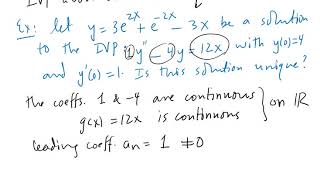 Ex: let y = 3e^{2x} + e^{-2x} - 3x be a solution
to the IVP 1y'' - 4y = 12x with y(0)=4
and y'(0)=1. Is this solution unique?
the coeffs. 1 & -4 are continuous } on IR
g(x) = 12x is continuous
leading coeff. an = 1 ≠ 0